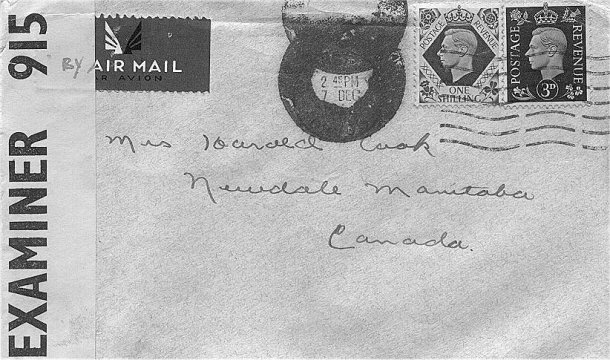 EXAMINER 915
BY AIR MAIL
PAR AVION
2 45 PM
7 DEC
POSTAGE REVENUE
ONE
SHILLING
POSTAGE REVENUE
3D
Mrs Harold Cook
Newdale Manitoba
Canada.